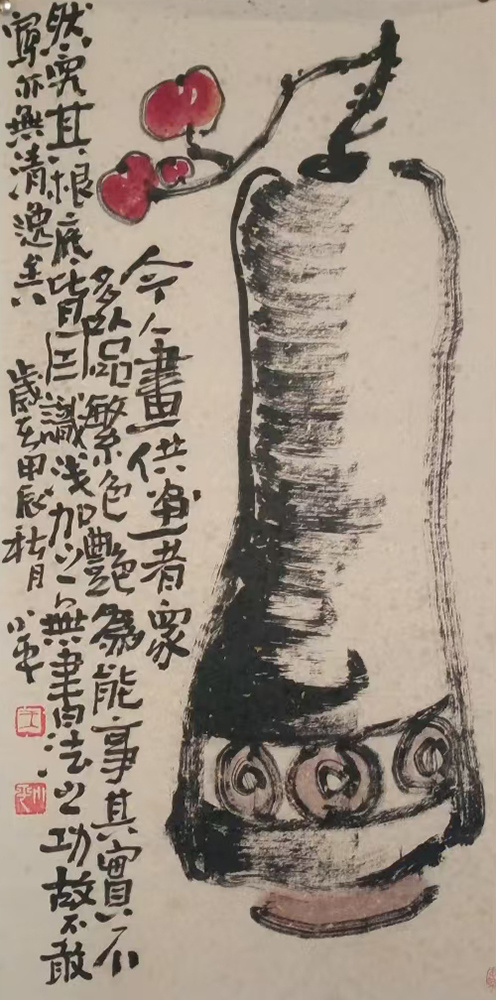 今人畫供画者众
多以品繁色艷為能事其實不
然究其根底皆因識浅加之無書法之功故不敢
寫亦無清逸矣 歲在甲辰秋月 小平